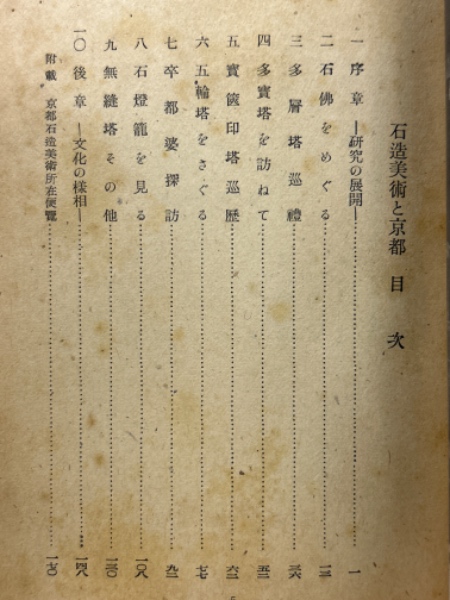 石造美術と京都 目次
一 序章 ―研究の展開― 一
二 石佛をめぐる 一三
三 多層塔巡禮 三六
四 多寶塔を訪ねて 五三
五 寶篋印塔巡歷 六二
六 五輪塔をさぐる 七七
七 卒都婆探訪 九二
八 石燈籠を見る 一〇八
九 無縫塔その他 一三〇
一〇 後章 ―文化の樣相― 一四八
附載 京都石造美術所在便覽 一七〇